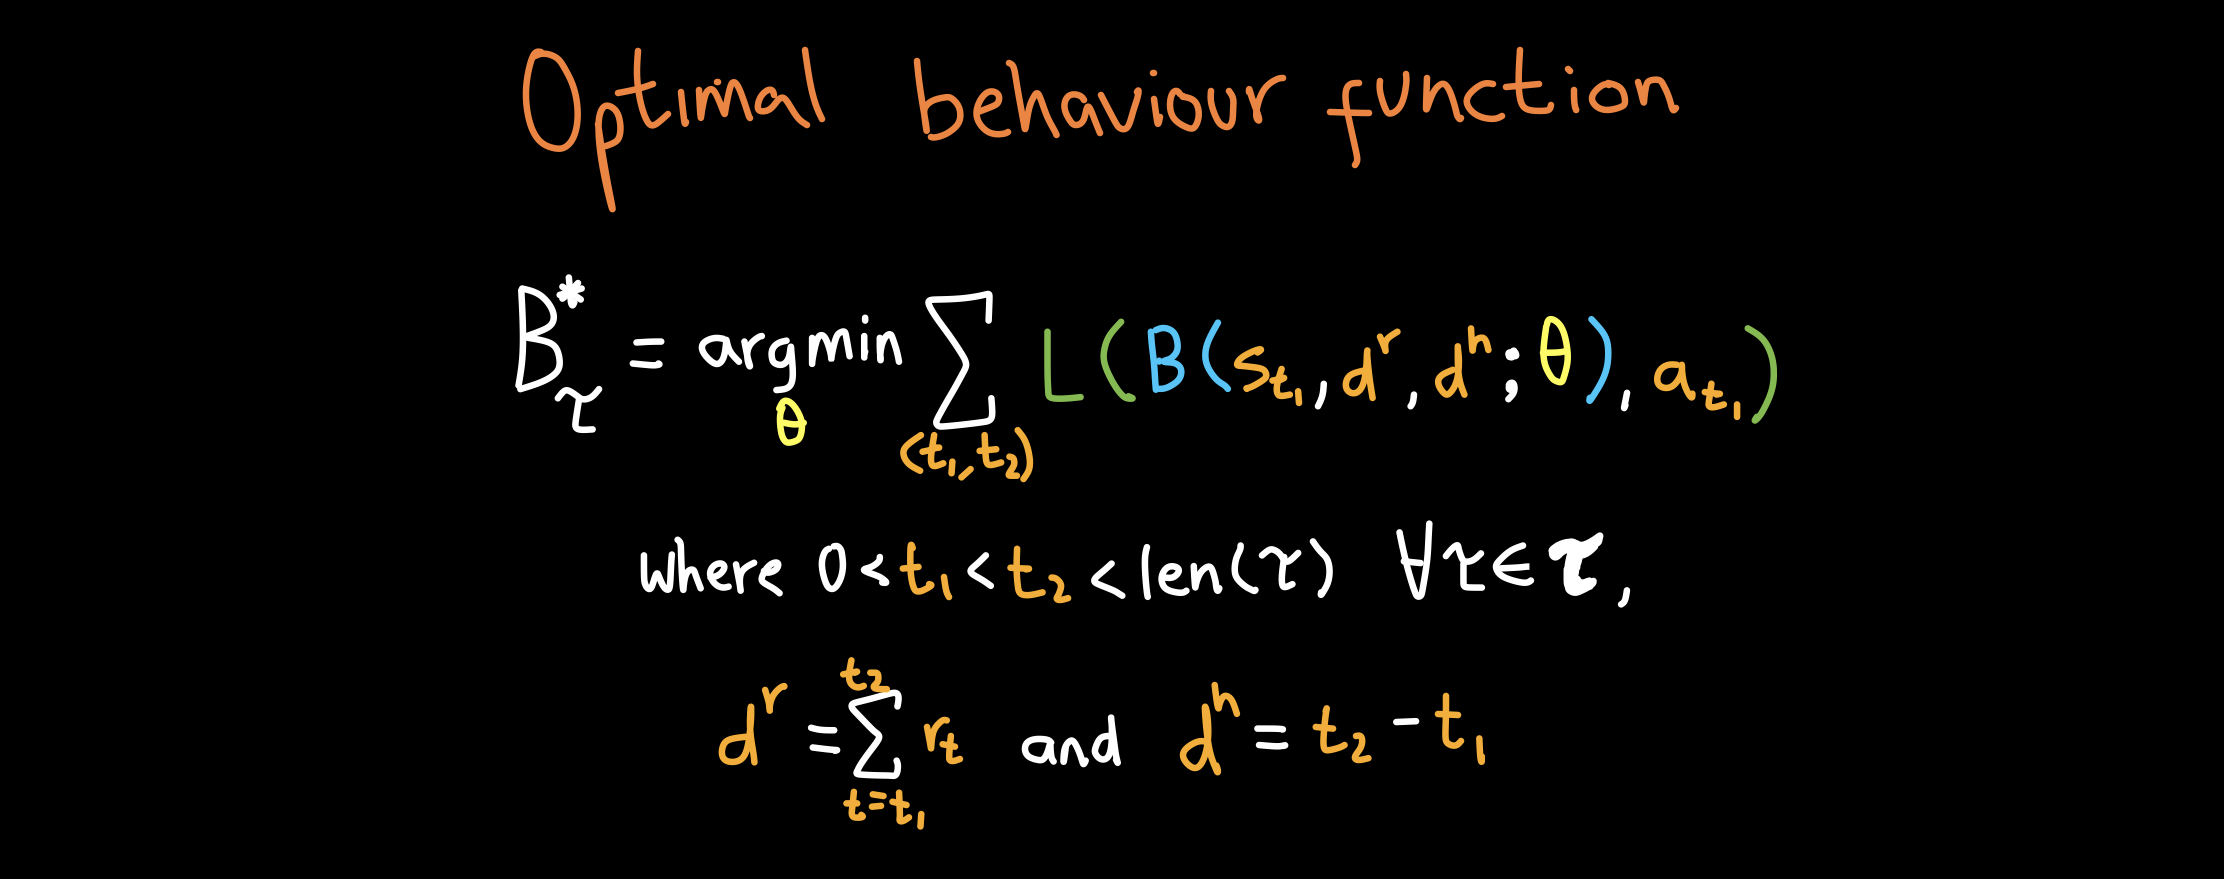 Optimal behaviour function
B*_τ = argmin_θ Σ_(t₁,t₂) L(B(s_t₁, d^r, d^h; θ), a_t₁)
where 0 < t₁ < t₂ < len(τ) ∀τ ∈ 𝛕,
d^r = Σ_{t=t₁}^{t₂} r_t and d^h = t₂ - t₁